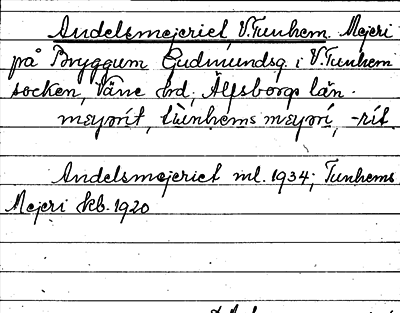 Andelsmejeriet, V. Tunhem. Mejeri
på Bryggum Gudmundsg. i V. Tunhem
socken, Väne hd, Älfsborgs län.
meyrit, tùnhems meyri, -rit.
Andelsmejeriet ml. 1934; Tunhems
Mejeri kb. 1920